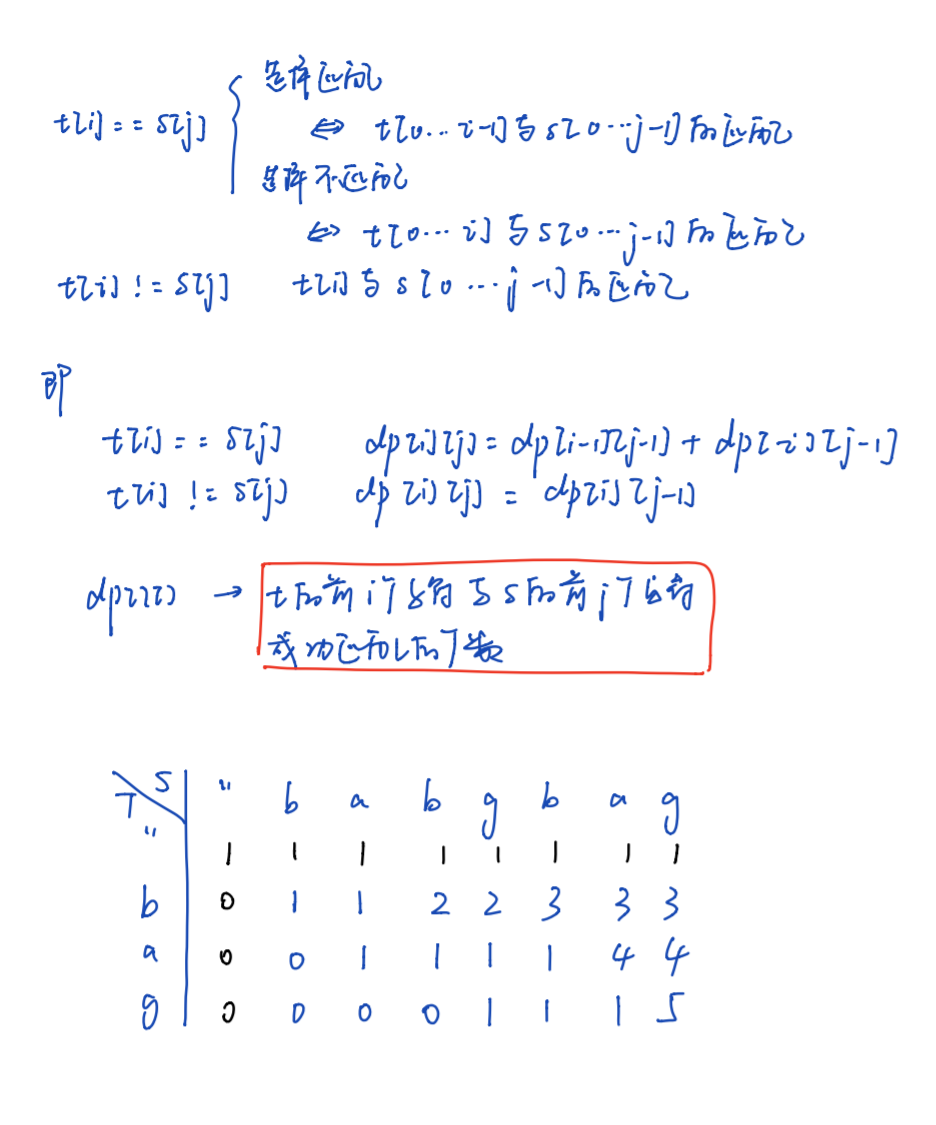 t[i] == s[j] { 选择匹配
⇔ t[0...i-1]与s[0...j-1]的匹配
选择不匹配
⇔ t[0...i]与s[0...j-1]的匹配
t[i] != s[j] t[i]与s[0...j-1]的匹配
即
t[i] == s[j] dp[i][j] = dp[i-1][j-1] + dp[-i][j-1]
t[i] != s[j] dp[i][j] = dp[i][j-1]
dp[][] → t的前i个字符与s的前j个字符
成功匹配的个数
T\S '' b a b g b a g
'' 1 1 1 1 1 1 1 1
b 0 1 1 2 2 3 3 3
a 0 0 1 1 1 1 4 4
g 0 0 0 0 1 1 1 5